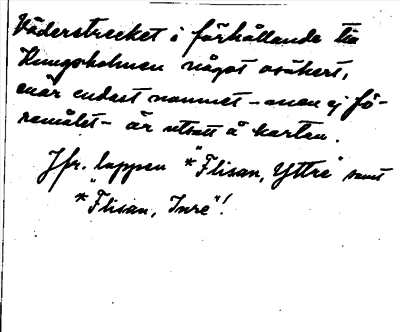 Väderstrecket i förhållande till
Kungsholmen något osäkert,
enär endast namnet - men ej fö-
remålet - är utsatt å kartan.
Jfr. lappen *"Flisan, Yttre" samt
*"Flisan, Inre"!